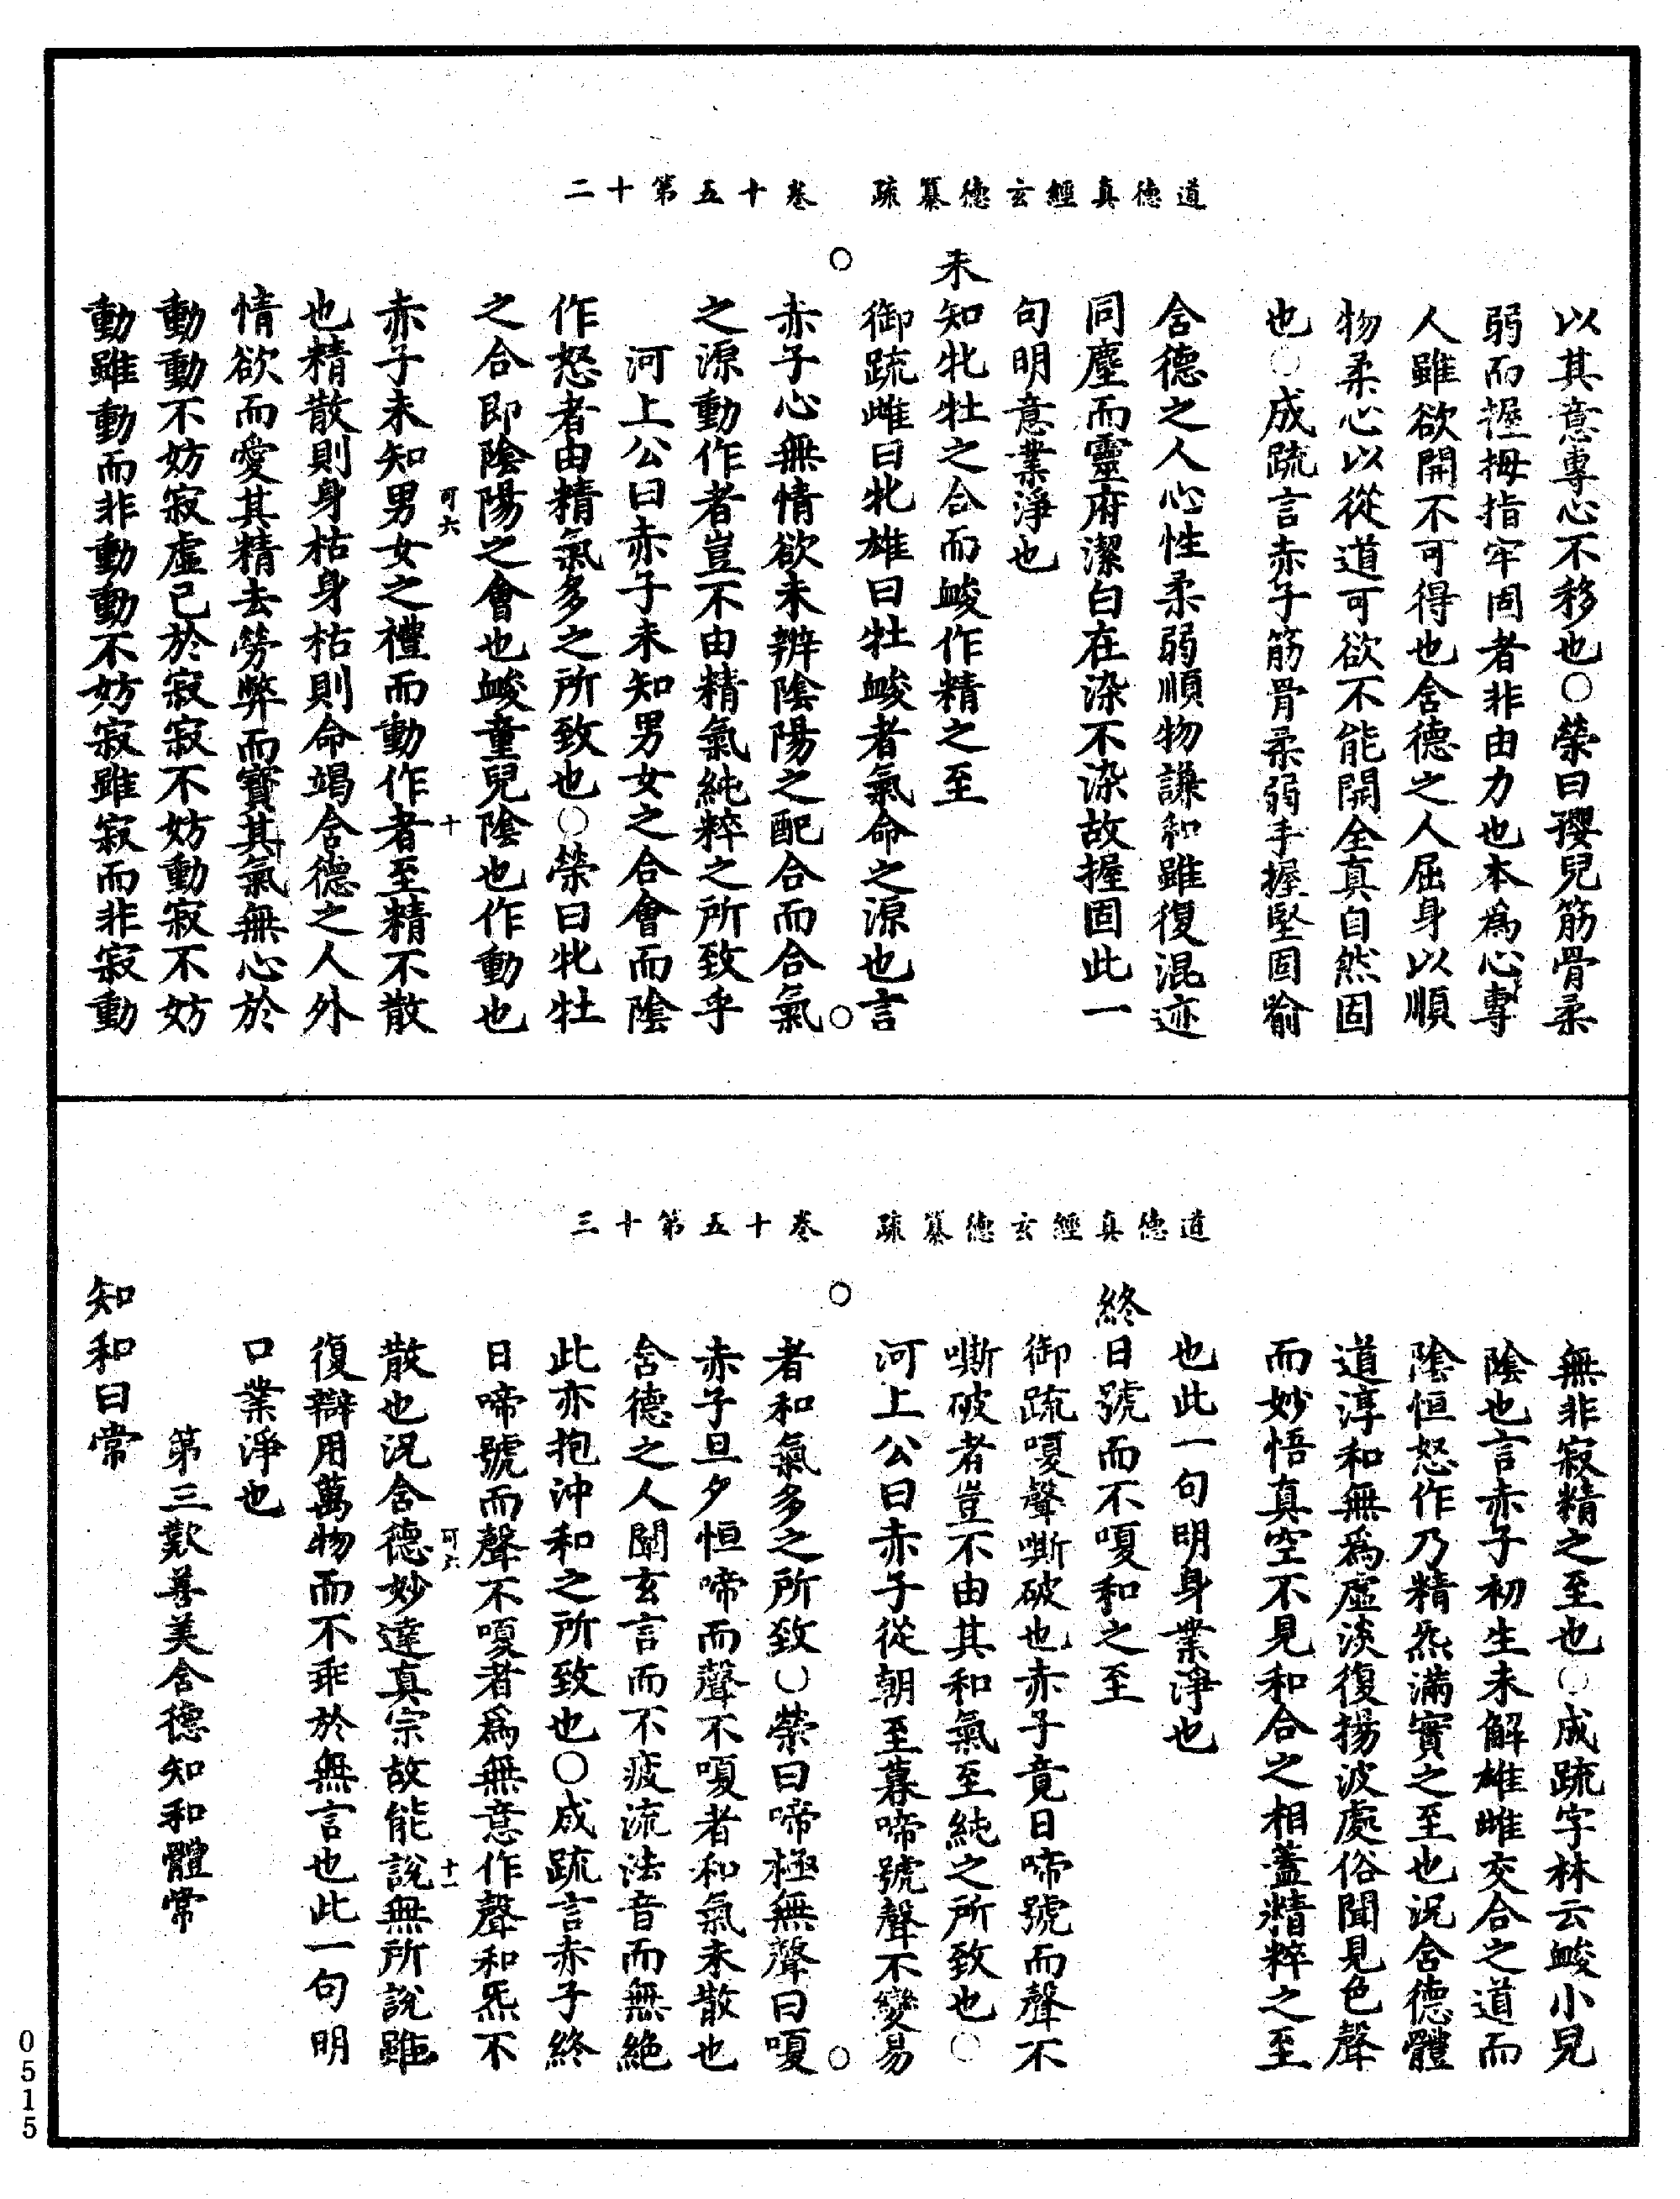 道德真經玄德纂疏　卷十五第十二
以其意專心不移也○榮曰瓔兒筋骨柔
弱而握拇指牢固者非由力也本為心專
人雖欲開不可得也含德之人屈身以順
物柔心以從道可欲不能開全真自然固
也○成疏言赤子筋骨柔弱手握堅固喻
含德之人心性柔弱順物謙和雖復混迹
同塵而靈府潔白在染不染故握固此一
句明意業淨也
未知牝牡之合而䘒作精之至
御疏雌曰牝雄曰牡䘒者氣命之源也言
赤子心無情欲未辨陰陽之配合而合氣
之源動作者豈不由精氣純粹之所致乎
河上公曰赤子未知男女之合會而陰
作怒者由精氣多之所致也○榮曰牝牡
之合即陰陽之會也䘒童兒陰也作動也
可六　十
赤子未知男女之禮而動作者至精不散
也精散則身枯身枯則命竭含德之人外
情欲而愛其精去勞弊而寶其氣無心於
動動不妨寂虛己於寂寂不妨動寂不妨
動雖動而非動動不妨寂雖寂而非寂動
道德真經玄德纂疏　卷十五第十三
無非寂精之至也○成疏字林云䘒小兒
陰也言赤子初生未解雄雌交合之道而
陰恒怒作乃精炁滿實之至也況含德體
道淳和無為虛淡復揚波處俗聞見色聲
而妙悟真空不見和合之相蓋精粹之至
也此一句明身業淨也
終日號而不嗄和之至
御疏嗄聲嘶破也赤子竟日啼號而聲不
嘶破者豈不由其和氣至純之所致也○
河上公曰赤子從朝至暮啼號聲不變易
者和氣多之所致○榮曰啼極無聲曰嗄
赤子旦夕恒啼而聲不嗄者和氣未散也
含德之人闡玄言而不疲流法音而無絕
此亦抱沖和之所致也○成疏言赤子終
日啼號而聲不嗄者為無意作聲和炁不
可六　十一
散也況含德妙達真宗故能說無所說雖
復辯用萬物而不乖於無言也此一句明
口業淨也
第三歎善美含德知和體常
知和曰常
0515